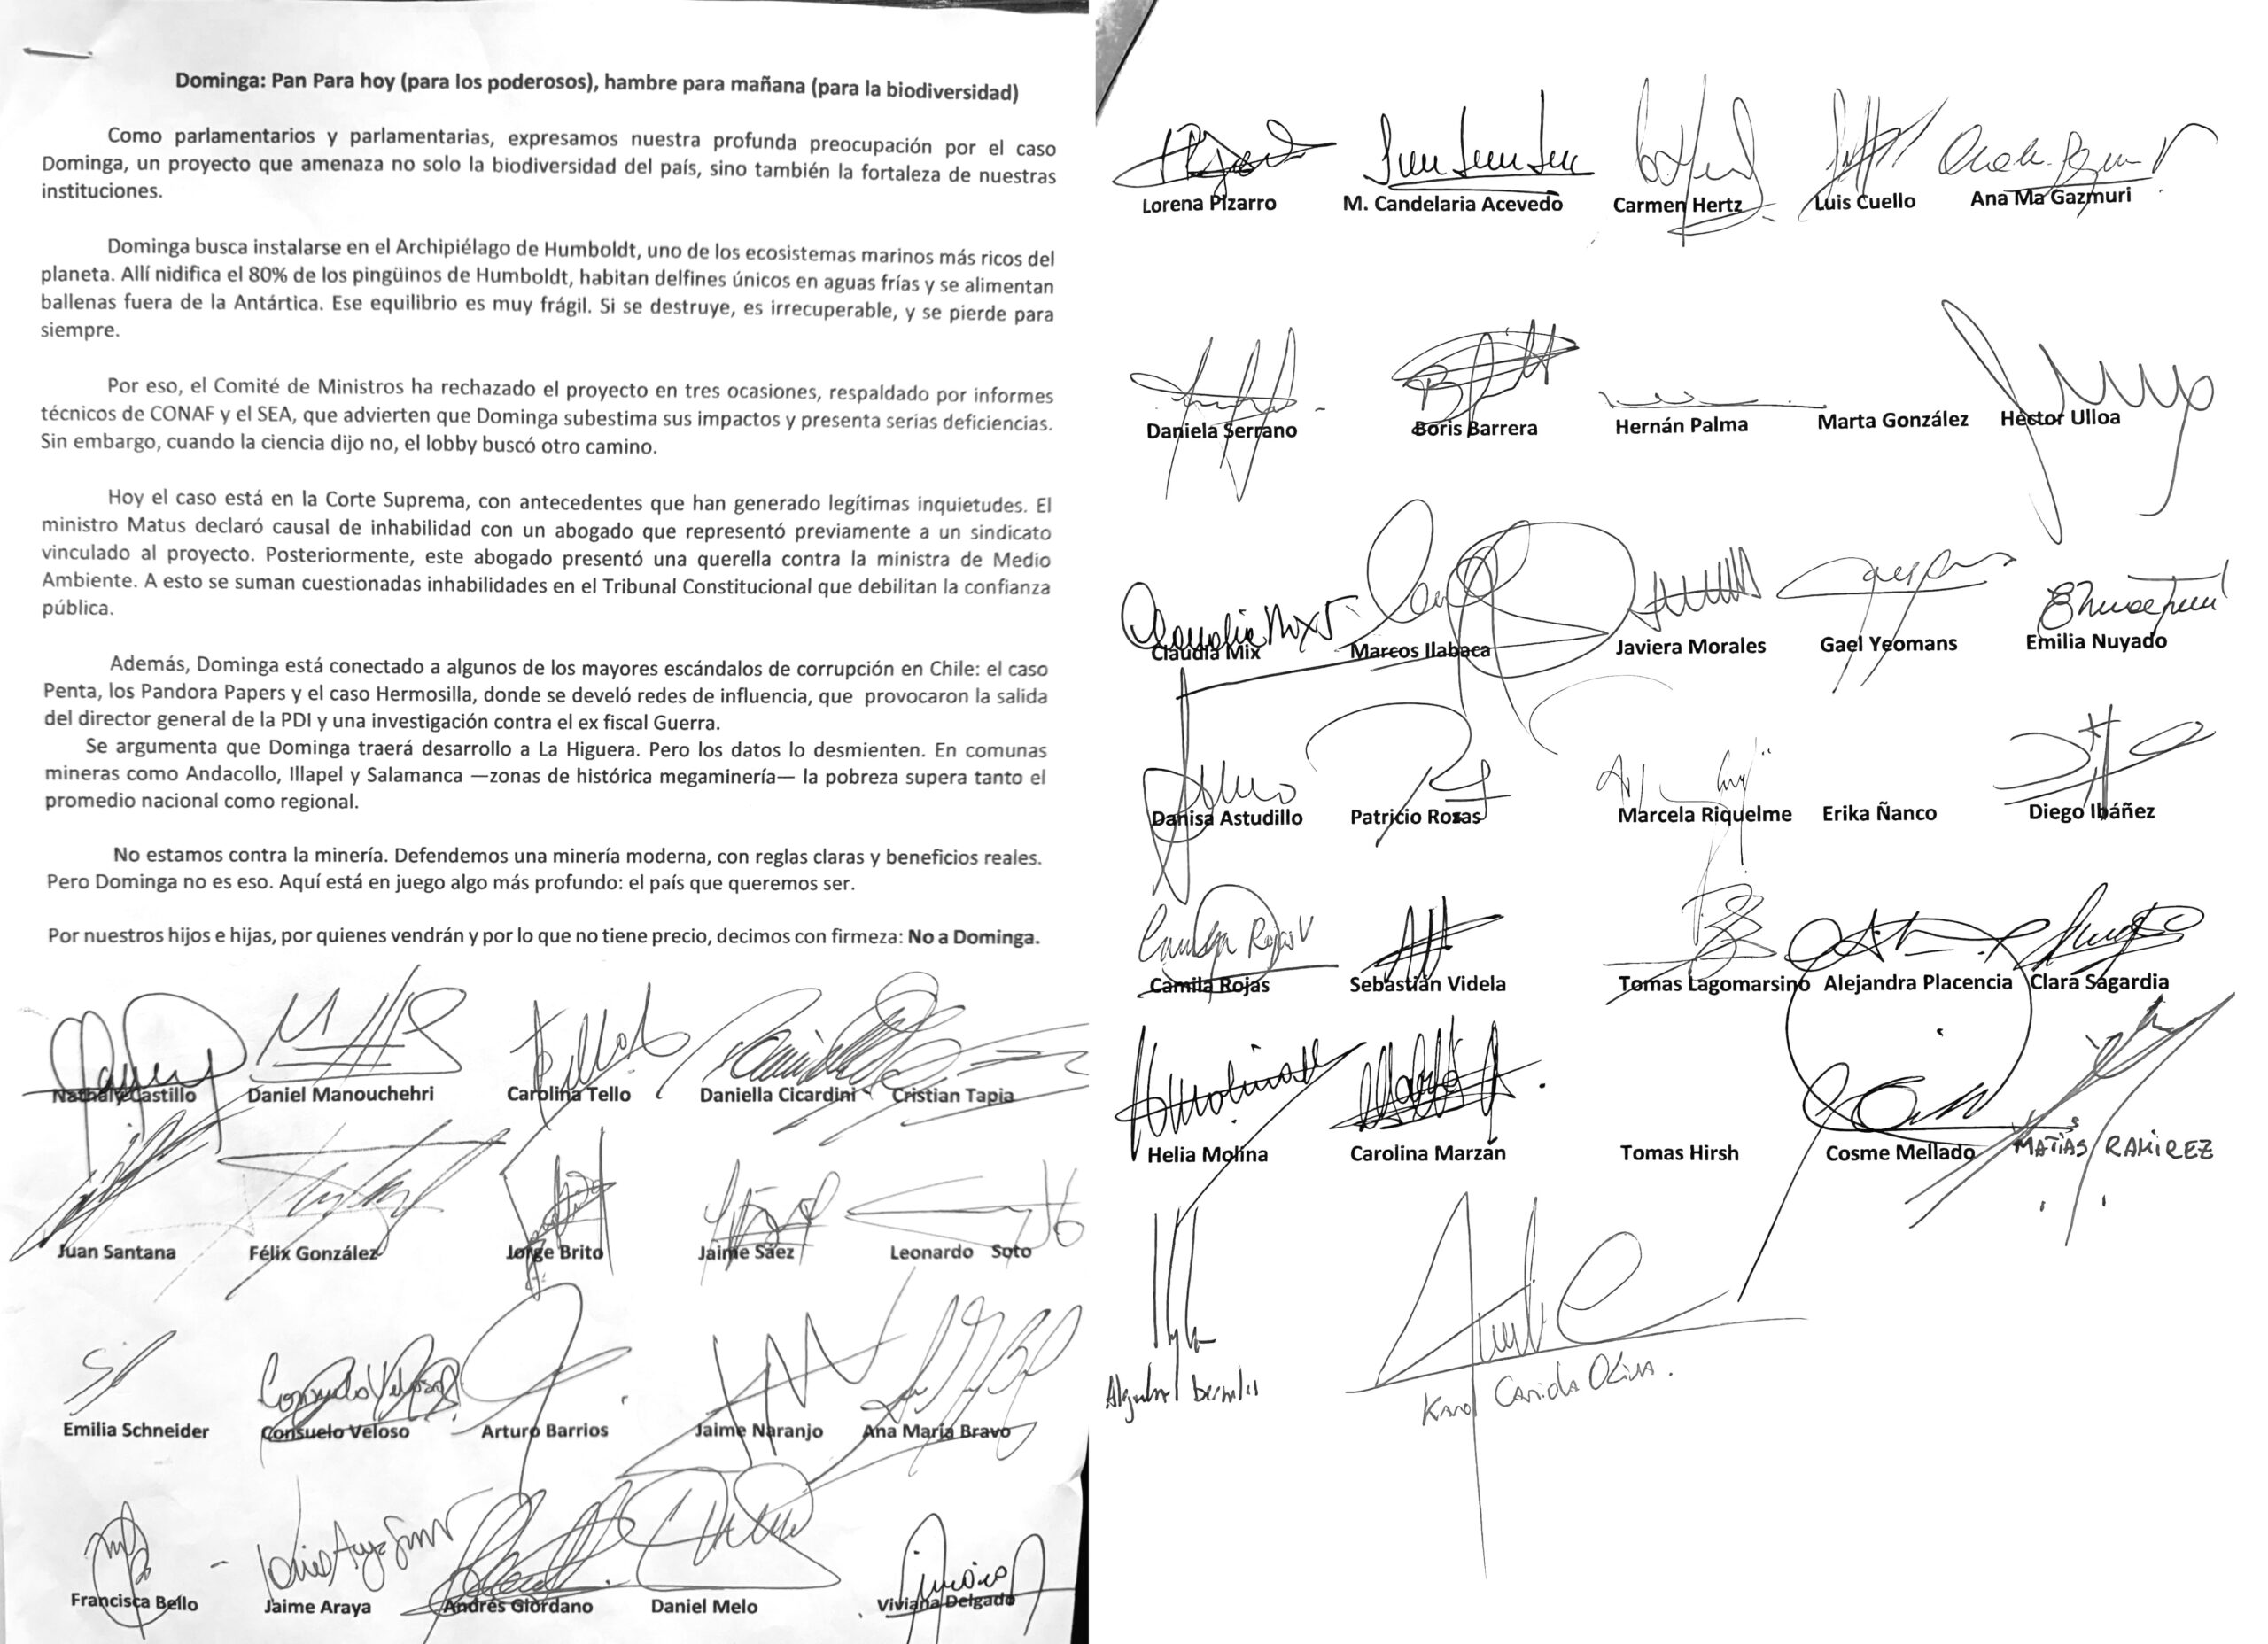 Dominga: Pan Para hoy (para los poderosos), hambre para mañana (para la biodiversidad)
Como parlamentarios y parlamentarias, expresamos nuestra profunda preocupación por el caso
Dominga, un proyecto que amenaza no solo la biodiversidad del país, sino también la fortaleza de nuestras
instituciones.
Dominga busca instalarse en el Archipiélago de Humboldt, uno de los ecosistemas marinos más ricos del
planeta. Allí nidifica el 80% de los pingüinos de Humboldt, habitan delfines únicos en aguas frías y se alimentan
ballenas fuera de la Antártica. Ese equilibrio es muy frágil. Si se destruye, es irrecuperable, y se pierde para
siempre.
Por eso, el Comité de Ministros ha rechazado el proyecto en tres ocasiones, respaldado por informes
técnicos de CONAF y el SEA, que advierten que Dominga subestima sus impactos y presenta serias deficiencias.
Sin embargo, cuando la ciencia dijo no, el lobby buscó otro camino.
Hoy el caso está en la Corte Suprema, con antecedentes que han generado legítimas inquietudes. El
ministro Matus declaró causal de inhabilidad con un abogado que representó previamente a un sindicato
vinculado al proyecto. Posteriormente, este abogado presentó una querella contra la ministra de Medio
Ambiente. A esto se suman cuestionadas inhabilidades en el Tribunal Constitucional que debilitan la confianza
pública.
Además, Dominga está conectado a algunos de los mayores escándalos de corrupción en Chile: el caso
Penta, los Pandora Papers y el caso Hermosilla, donde se develó redes de influencia, que provocaron la salida
del director general de la PDI y una investigación contra el ex fiscal Guerra.
Se argumenta que Dominga traerá desarrollo a La Higuera. Pero los datos lo desmienten. En comunas
mineras como Andacollo, Illapel y Salamanca —zonas de histórica megaminería— la pobreza supera tanto el
promedio nacional como regional.
No estamos contra la minería. Defendemos una minería moderna, con reglas claras y beneficios reales.
Pero Dominga no es eso. Aquí está en juego algo más profundo: el país que queremos ser.
Por nuestros hijos e hijas, por quienes vendrán y por lo que no tiene precio, decimos con firmeza: No a Dominga.
Nathaly Castillo Daniel Manouchehri Carolina Tello Daniella Cicardini Cristian Tapia
Juan Santana Félix González Jorge Brito Jaime Sáez Leonardo Soto
Consuelo Veloso
Emilia Schneider Consuelo Veloso Arturo Barrios Jaime Naranjo Ana María Bravo
Francisca Bello Jaime Araya Andrés Giordano Daniel Melo Viviana Delgado
Lorena Pizarro M. Candelaria Acevedo Carmen Hertz Luis Cuello Ana Ma Gazmuri
Daniela Serrano Boris Barrera Hernán Palma Marta González Héctor Ulloa
Claudia Mix
Claudia Mix Marcos Ilabaca Javiera Morales Gael Yeomans Emilia Nuyado
Danisa Astudillo Patricio Rosas Marcela Riquelme Erika Ñanco Diego Ibáñez
Camila Rojas V
Camila Rojas Sebastián Videla Tomas Lagomarsino Alejandra Placencia Clara Sagardia
Helia Molina Carolina Marzán Tomas Hirsh Cosme Mellado MATÍAS RAMIREZ
Karol Cariola Oliva.